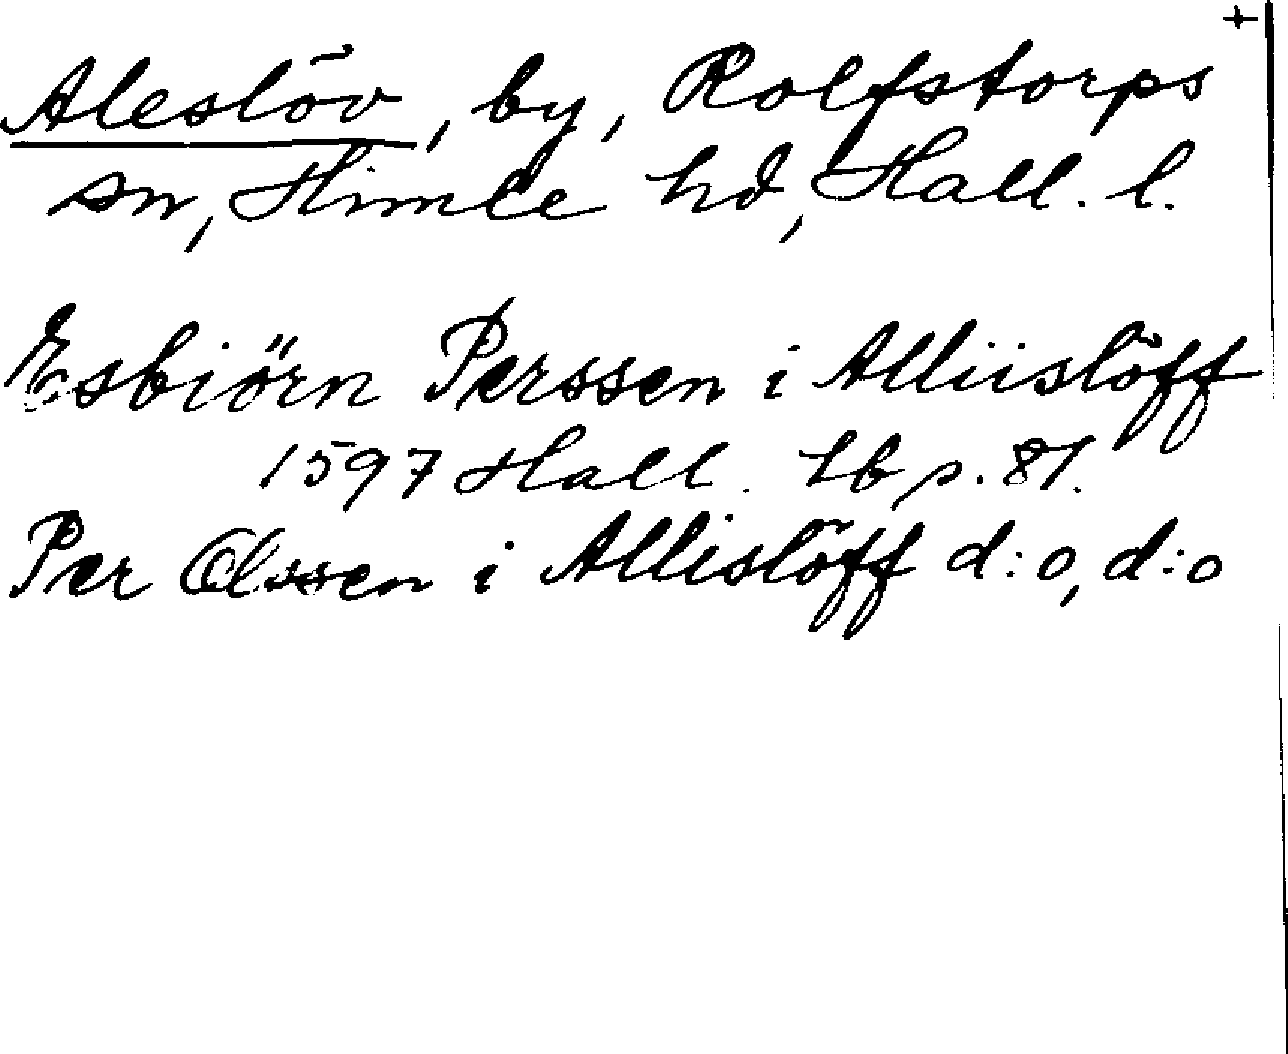 +
Aleslöv, by, Rolfstorps
sn, Himle hd, Hall. l.
Esbiörn Perssen i Alliislöff
1597 Hall. lb p. 81.
Per Olssen i Allislöff d:o, d:o